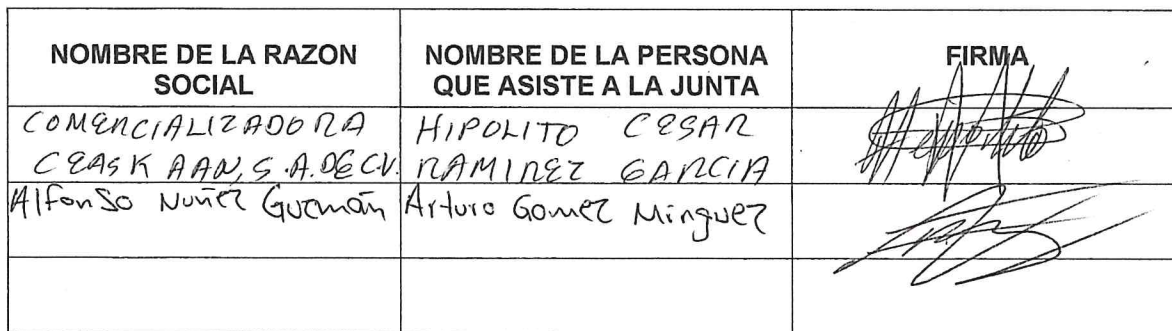 NOMBRE DE LA RAZON
SOCIAL
NOMBRE DE LA PERSONA
QUE ASISTE A LA JUNTA
FIRMA
COMERCIALIZADORA
CEASK AAN, S.A. DE C.V.
HIPOLITO CESAR
RAMIREZ GARCIA
Hipolito
Alfonso Nuñez Guzmán
Arturo Gomez Minguez